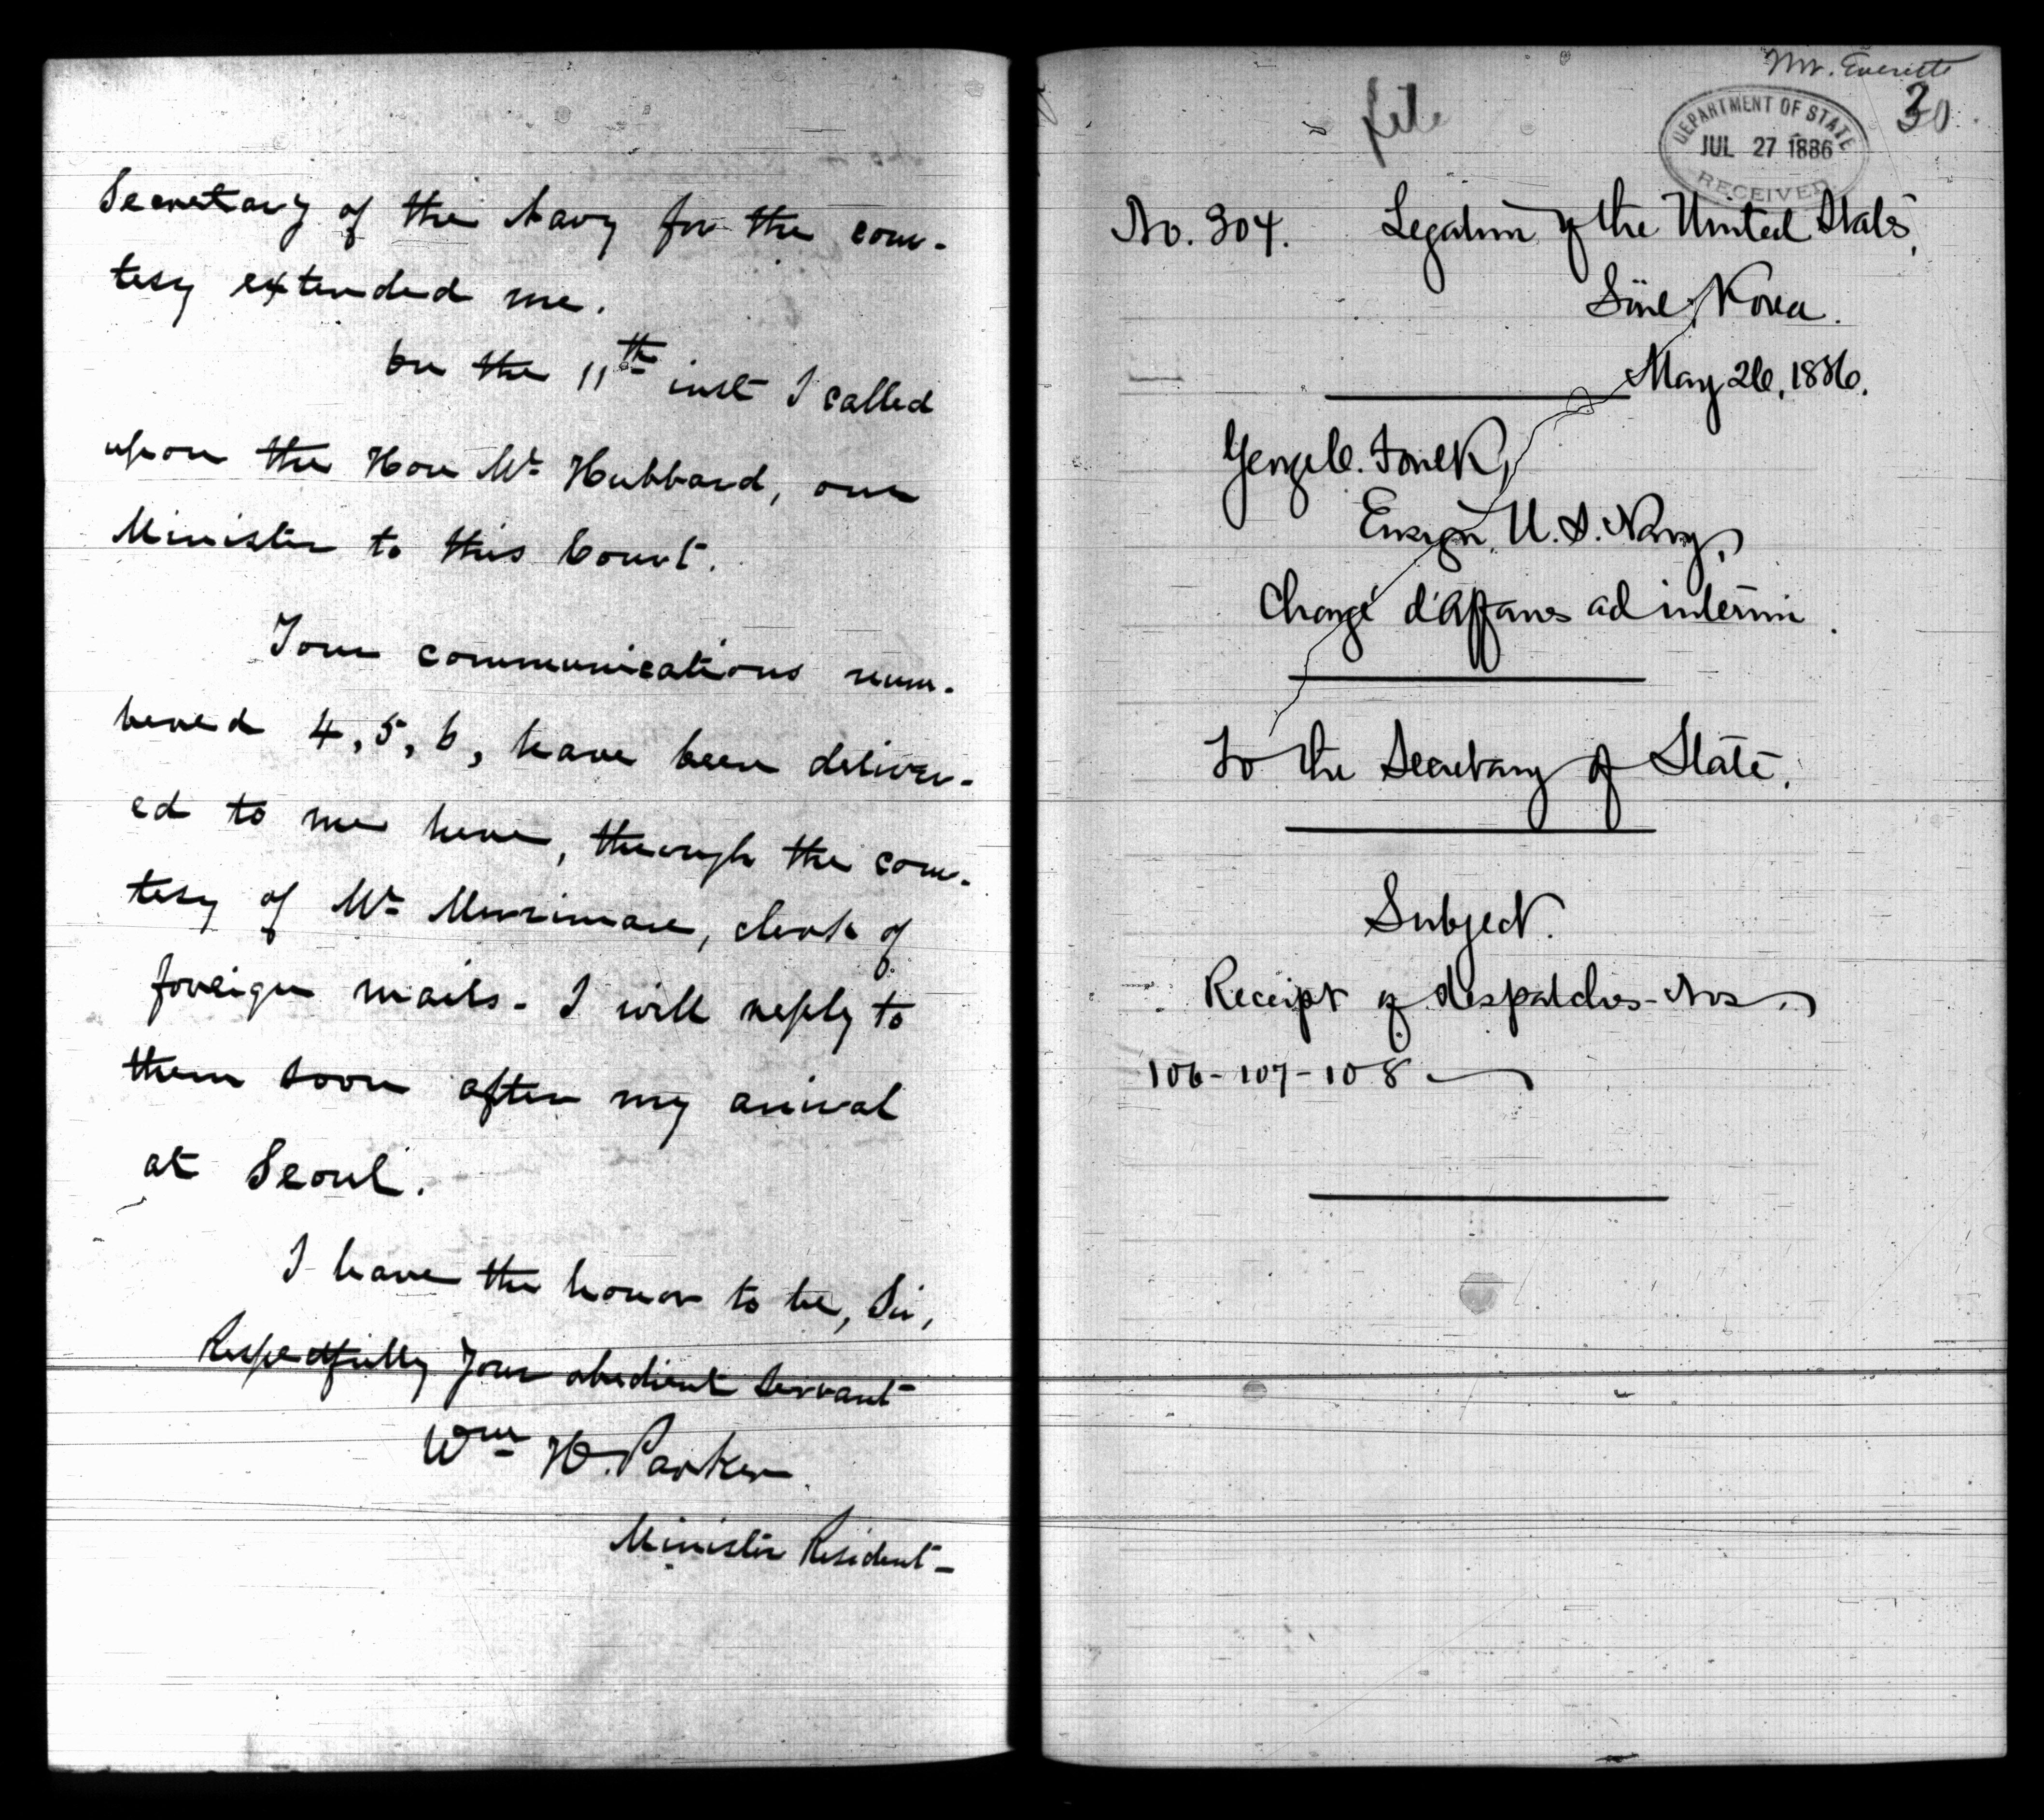 Secretary of the Navy for the cour-
tesy extended me.
On the 11th inst I called
upon the Hon Mr Hubbard, our
Minister to this Court.
Your communications num-
bered 4, 5, 6, have been deliver-
ed to me here, through the cour-
tesy of Mr Merrimace, clerk of
foreign mails. I will reply to
them soon after my arrival
at Seoul.
I have the honor to be, Sir,
Respectfully Your obedient Servant
Wm H. Parker
Minister Resident-
Mr. Everette
30
file
DEPARTMENT OF STATE
JUL 27 1886
RECEIVED
No. 304. Legation of the United States,
Söul, Korea.
May 26, 1886.
George C. Foulk,
Ensign, U. S. Navy,
Chargé d'Affaires ad interim.
To the Secretary of State.
Subject.
Receipt of despatches - Nos.
106 - 107 - 108